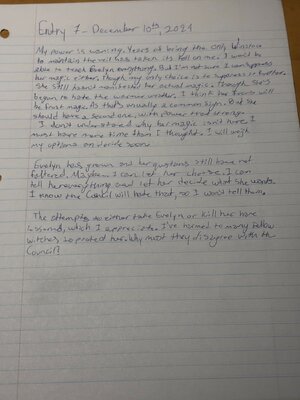 Entry 7 - December 10th, 2021
My power is waning. Years of being the only
to maintain the veil has taken its toll on me. I won't be
able to teach Evelyn everything. But I'm not sure I can suppress
her magic either, though my only choice is to suppress it further.
She still hasn't manifested her actual magic. Though she's
begun to hate the warmer weather. I think her will
be frost magic. As that's usually a common sign. But she
should have a second one, with power that strong.
I don't understand why her magic isn't here. I
must have more time than I thought. I will
my options an decide soon.
Evelyn has grown and her questions still have not
faltered. Maybe I can let her choose. I can
tell her everything and let her decide what she wants.
I know the Council will hate that, so I won't tell them.
The attempts to either take Evelyn or kill her have
lessened, which I appreciate. I've harmed to many fellow
witches to protect her. Why must they disagree with the
Council?